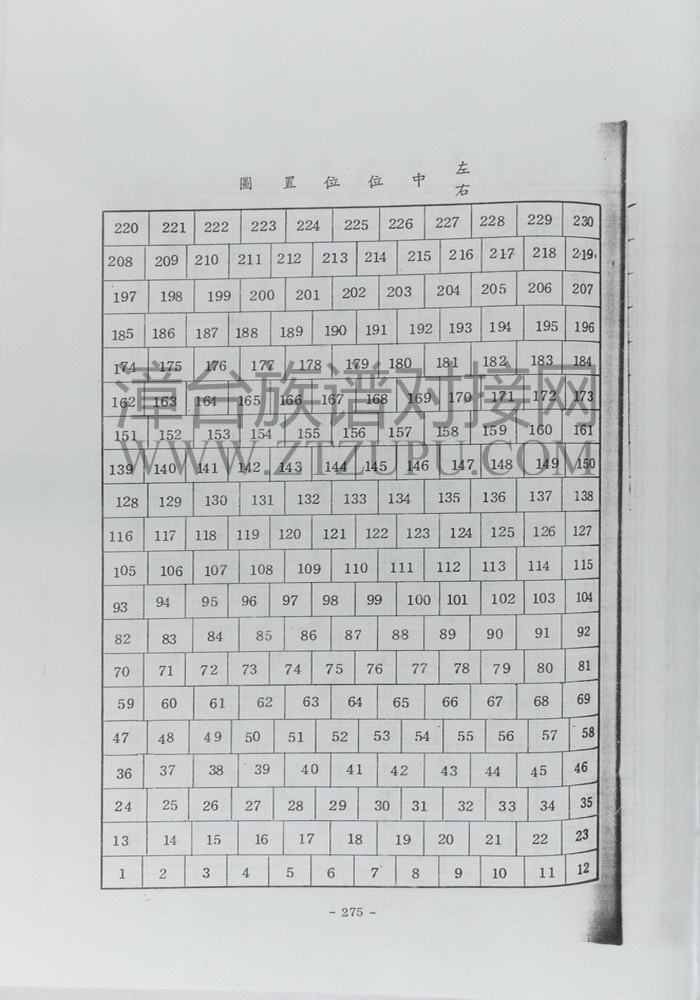 圖置位位中左右
220 221 222 223 224 225 226 227 228 229 230
208 209 210 211 212 213 214 215 216 217 218 219
197 198 199 200 201 202 203 204 205 206 207
185 186 187 188 189 190 191 192 193 194 195 196
174 175 176 177 178 179 180 181 182 183 184
162 163 164 165 166 167 168 169 170 171 172 173
漳台族谱对接网
151 152 153 154 155 156 157 158 159 160 161
WWW.ZTZUPU.COM
139 140 141 142 143 144 145 146 147 148 149 150
128 129 130 131 132 133 134 135 136 137 138
116 117 118 119 120 121 122 123 124 125 126 127
105 106 107 108 109 110 111 112 113 114 115
93 94 95 96 97 98 99 100 101 102 103 104
82 83 84 85 86 87 88 89 90 91 92
70 71 72 73 74 75 76 77 78 79 80 81
59 60 61 62 63 64 65 66 67 68 69
47 48 49 50 51 52 53 54 55 56 57 58
36 37 38 39 40 41 42 43 44 45 46
24 25 26 27 28 29 30 31 32 33 34 35
13 14 15 16 17 18 19 20 21 22 23
1 2 3 4 5 6 7 8 9 10 11 12
- 275 -